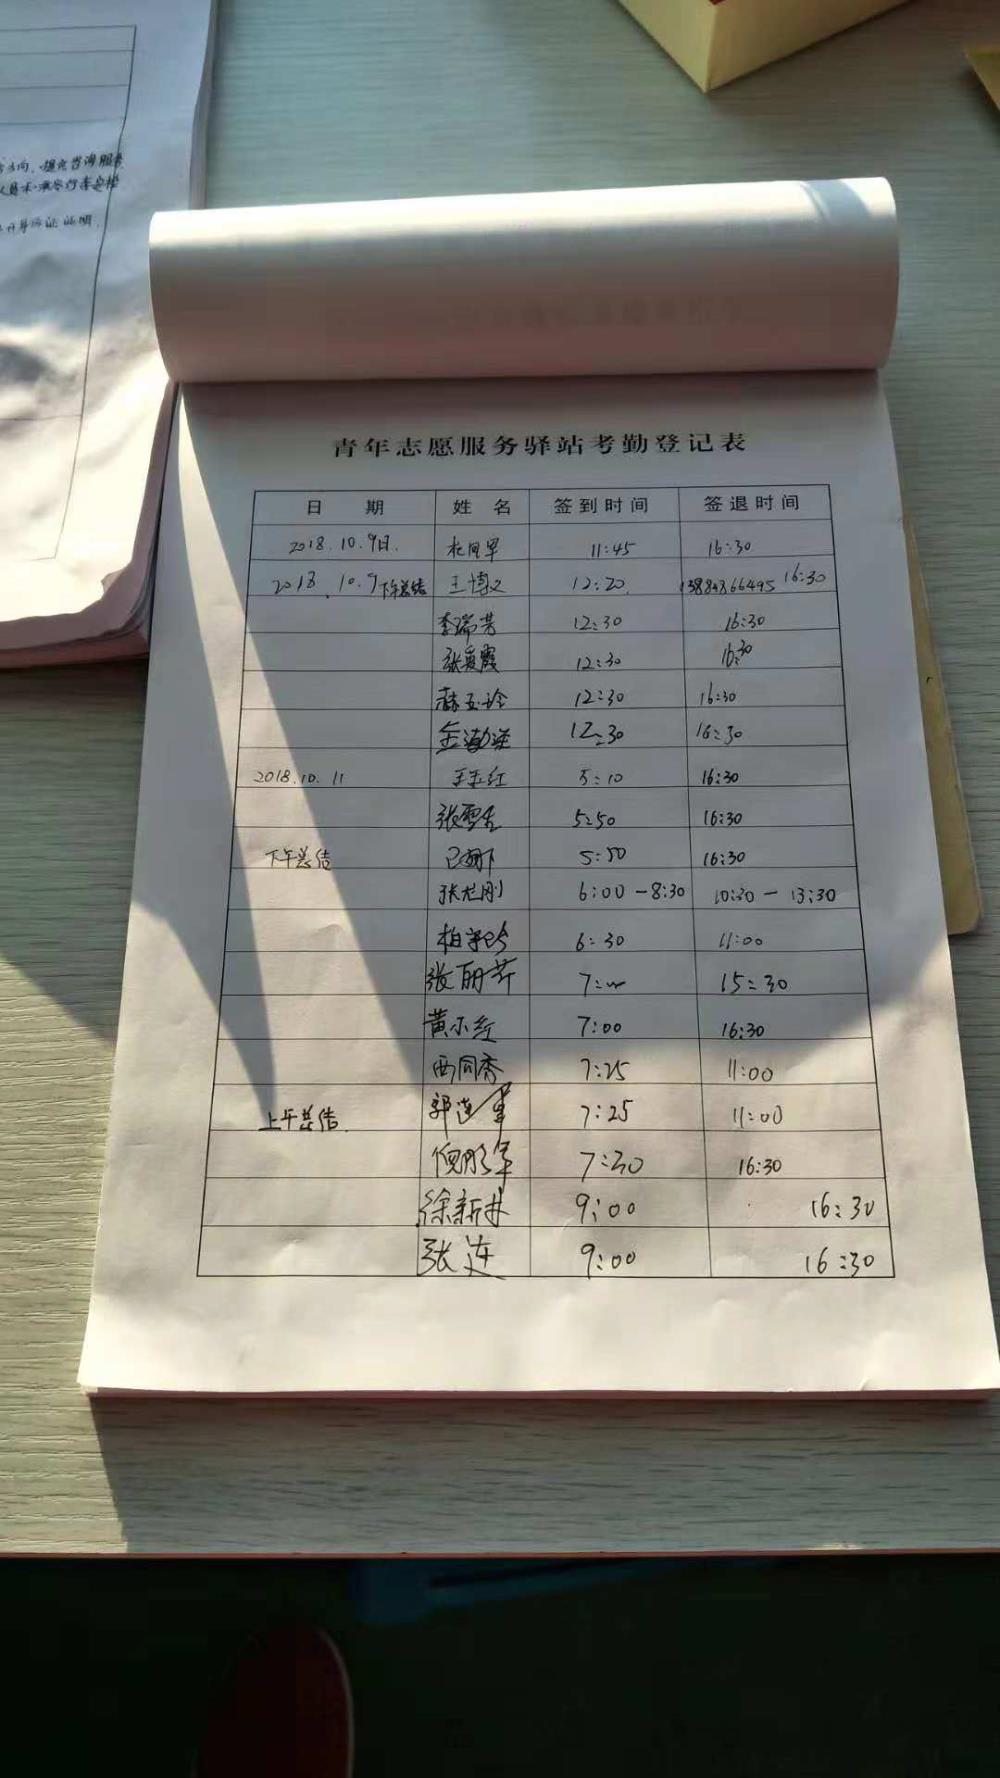 方向、提供咨询服务
证明.
青年志愿服务驿站考勤登记表
日 期 姓 名 签到时间 签退时间
2018.10.9日. 11:45 16:30
2018.10.9下午总结 王博文 12:20. 13884866495 16:30
李瑞芳 12:30 16:30
张夏霞 12:30 16:30
赫玉玲 12:30 16:30
12:30 16:30
2018.10.11 王玉红 5:10 16:30
张雪 5:50 16:30
下午总结 5:50 16:30
张 刚 6:00-8:30 10:30-13:30
柏 6:30 11:00
张丽芹 7:00 15:30
黄小红 7:00 16:30
西同秀 7:25 11:00
上午总结. 郭连军 7:25 11:00
倪彤军 7:30 16:30
徐新林 9:00 16:30
张连 9:00 16:30